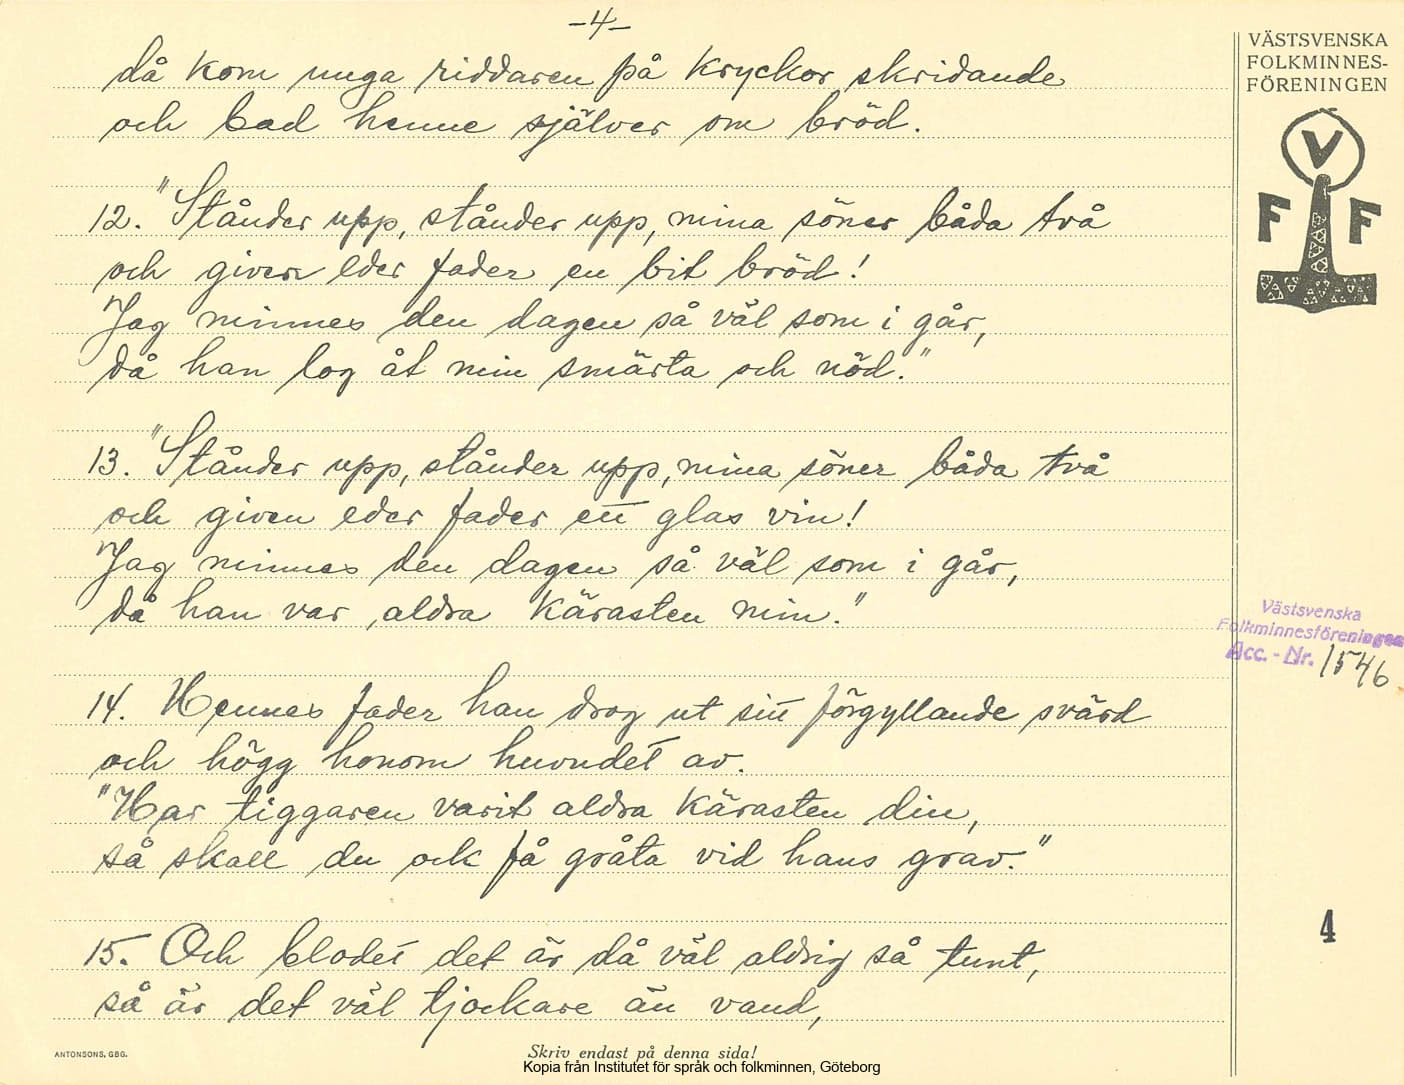 -4-
då kom unga riddaren på kryckor skridande
och bad henne själver om bröd.
12. "Ståndes upp, stånder upp, mina söner båda två
och given eder fader en bit bröd!
Jag minnes den dagen så väl som i går,
då han log åt min smärta och nöd."
13. "Stånder upp, stånder upp, mina söner båda två
och given eder fader ett glas vin!
Jag minnes den dagen så väl som i går,
då han var aldra kärasten min."
14. Hennes fader han drog ut sitt förgyllande svärd
och högg honom huvudet av.
"Har tiggaren varit aldra kärasten din,
så skall du ock få gråta vid hans grav."
15. Och blodet det är då väl aldrig så tunt,
så är det väl tjockare än vand,
VÄSTSVENSKA
FOLKMINNES-
FÖRENINGEN
V
F F
Västsvenska
Folkminnesföreningen
Acc. - Nr. 1546
4
ANTONSONS, GBG.
Skriv endast på denna sida!
Kopia från Institutet för språk och folkminnen, Göteborg